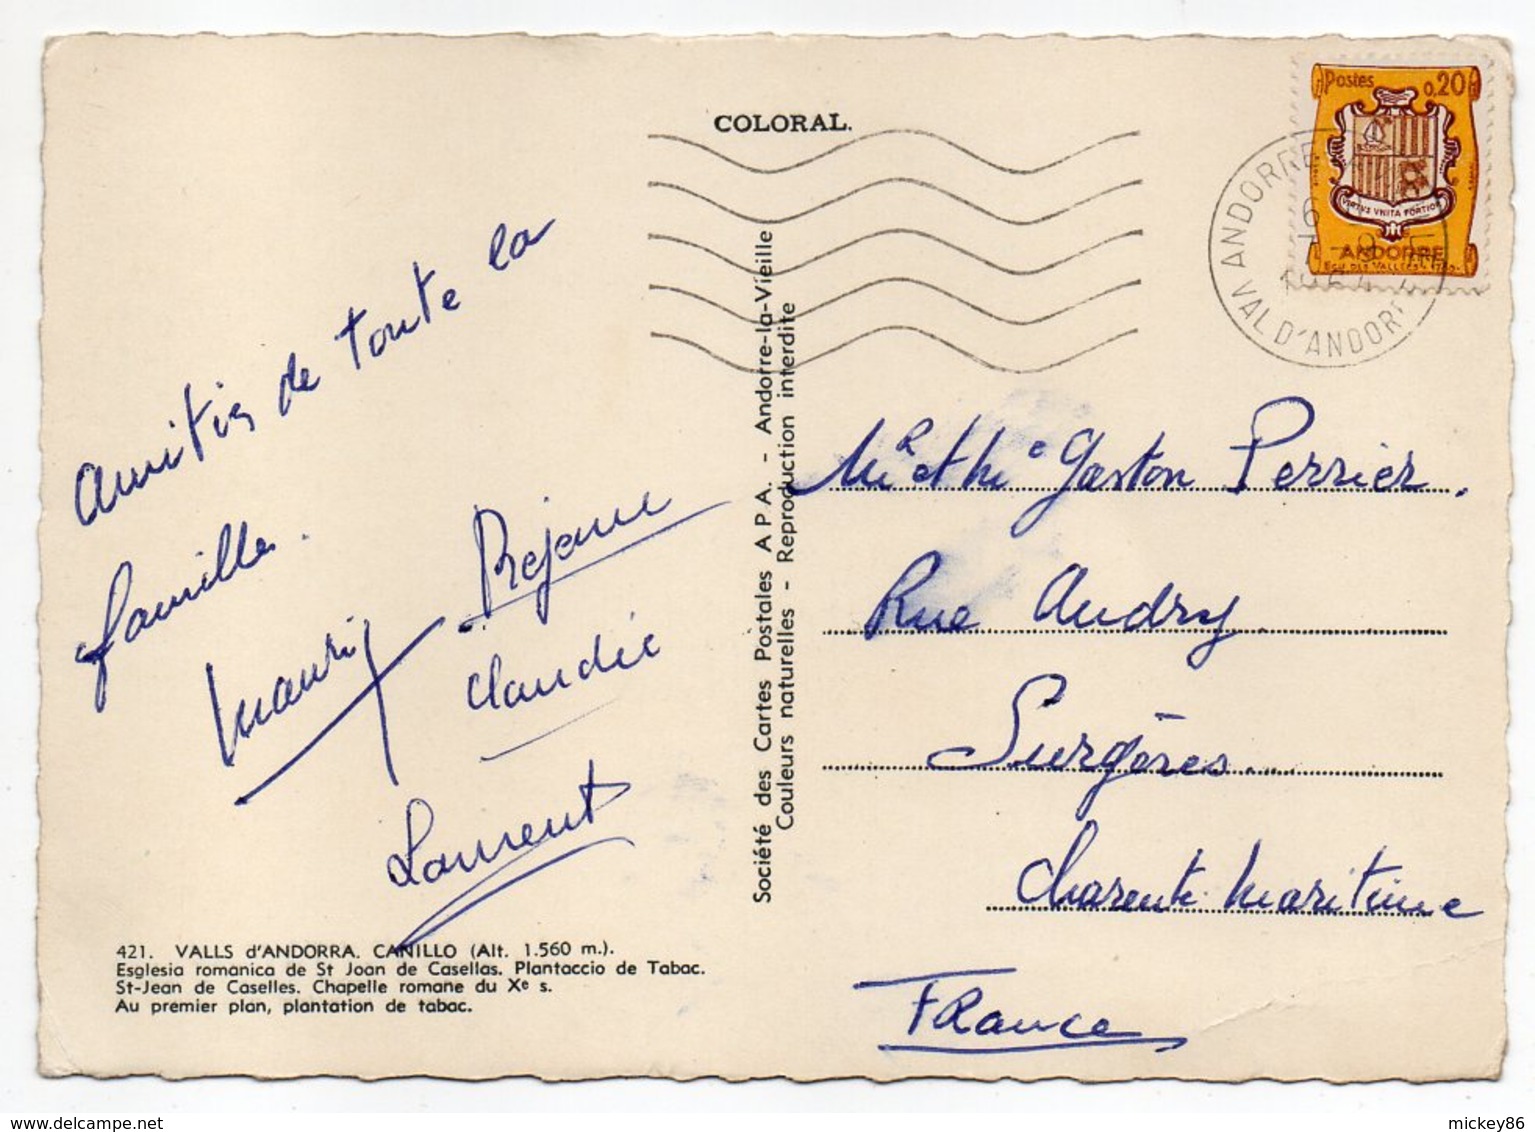 COLORAL.
Postes 0,20
VIRTUS UNITA FORTIOR
ANDORRE
ANDORRE
VAL D'ANDORRE
amitiés de toute la
famille.
Maurice
Rejane
Claudie
Laurent
Société des Cartes Postales A P A. - Andorre-la-Vieille
Couleurs naturelles - Reproduction interdite
Mr et Me Gaston Perrier.
Rue Audry
Surgères.
Charente Maritime
France
421. VALLS d'ANDORRA. CANILLO (Alt. 1.560 m.).
Esglesia romanica de St Joan de Casellas. Plantaccio de Tabac.
St-Jean de Caselles. Chapelle romane du Xe s.
Au premier plan, plantation de tabac.
mickey86